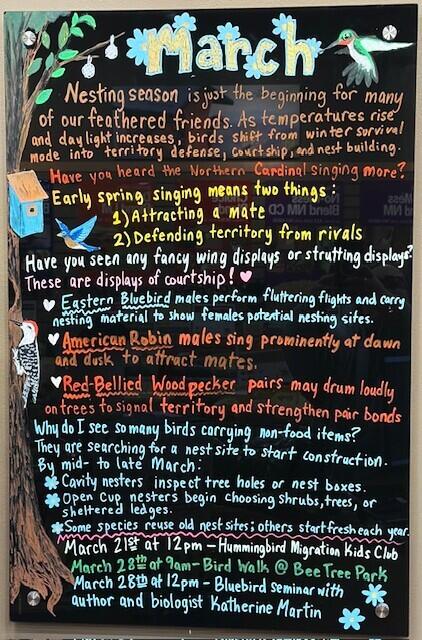 March
Nesting season is just the beginning for many
of our feathered friends. As temperatures rise
and daylight increases, birds shift from winter survival
mode into territory defense, courtship, and nest building.
Have you heard the Northern Cardinal singing more?
Early spring singing means two things:
1) Attracting a mate
2) Defending territory from rivals
Have you seen any fancy wing displays or strutting displays?
These are displays of courtship!
Eastern Bluebird males perform fluttering flights and carry
nesting material to show females potential nesting sites.
American Robin males sing prominently at dawn
and dusk to attract mates.
Red-Bellied Woodpecker pairs may drum loudly
on trees to signal territory and strengthen pair bonds
Why do I see so many birds carrying non-food items?
They are searching for a nest site to start construction.
By mid- to late March:
Cavity nesters inspect tree holes or nest boxes.
Open cup nesters begin choosing shrubs, trees, or
sheltered ledges.
Some species reuse old nest sites; others start fresh each year.
March 21st at 12pm - Hummingbird Migration Kids Club
March 28th at 9am - Bird Walk @ Bee Tree Park
March 28th at 12pm - Bluebird seminar with
author and biologist Katherine Martin